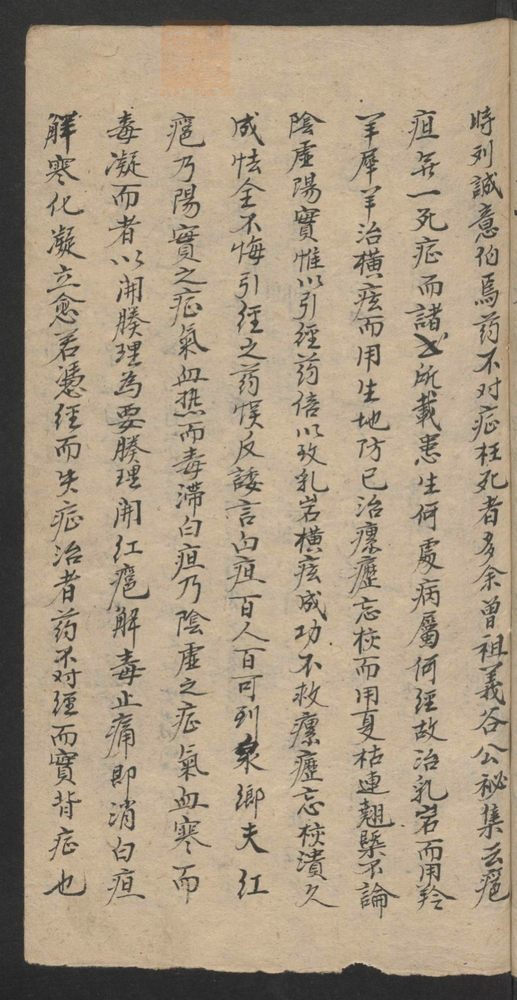 時列誠意伯焉药不对症枉死者多余曾祖義谷公秘集云癰
疽無一死症而諸书所載患生何處病屬何經故治乳岩而用羚
羊犀羊治橫痃而用生地防已治瘰癧忘核而用夏枯連翹槩不論
陰虛陽實惟以引經药倍以致乳岩橫痃成功不救瘰癧忘核潰久
成怯全不悔引經之药悞反諉言白疽百人百可到泉鄉夫红
癰乃陽實之症氣血热而毒滞白疽乃陰虛之症氣血寒而
毒凝而者以開腠理為要腠理開红癰解毒止痛即消白疽
解寒化凝立愈若憑經而失症治者药不对經而實背症也